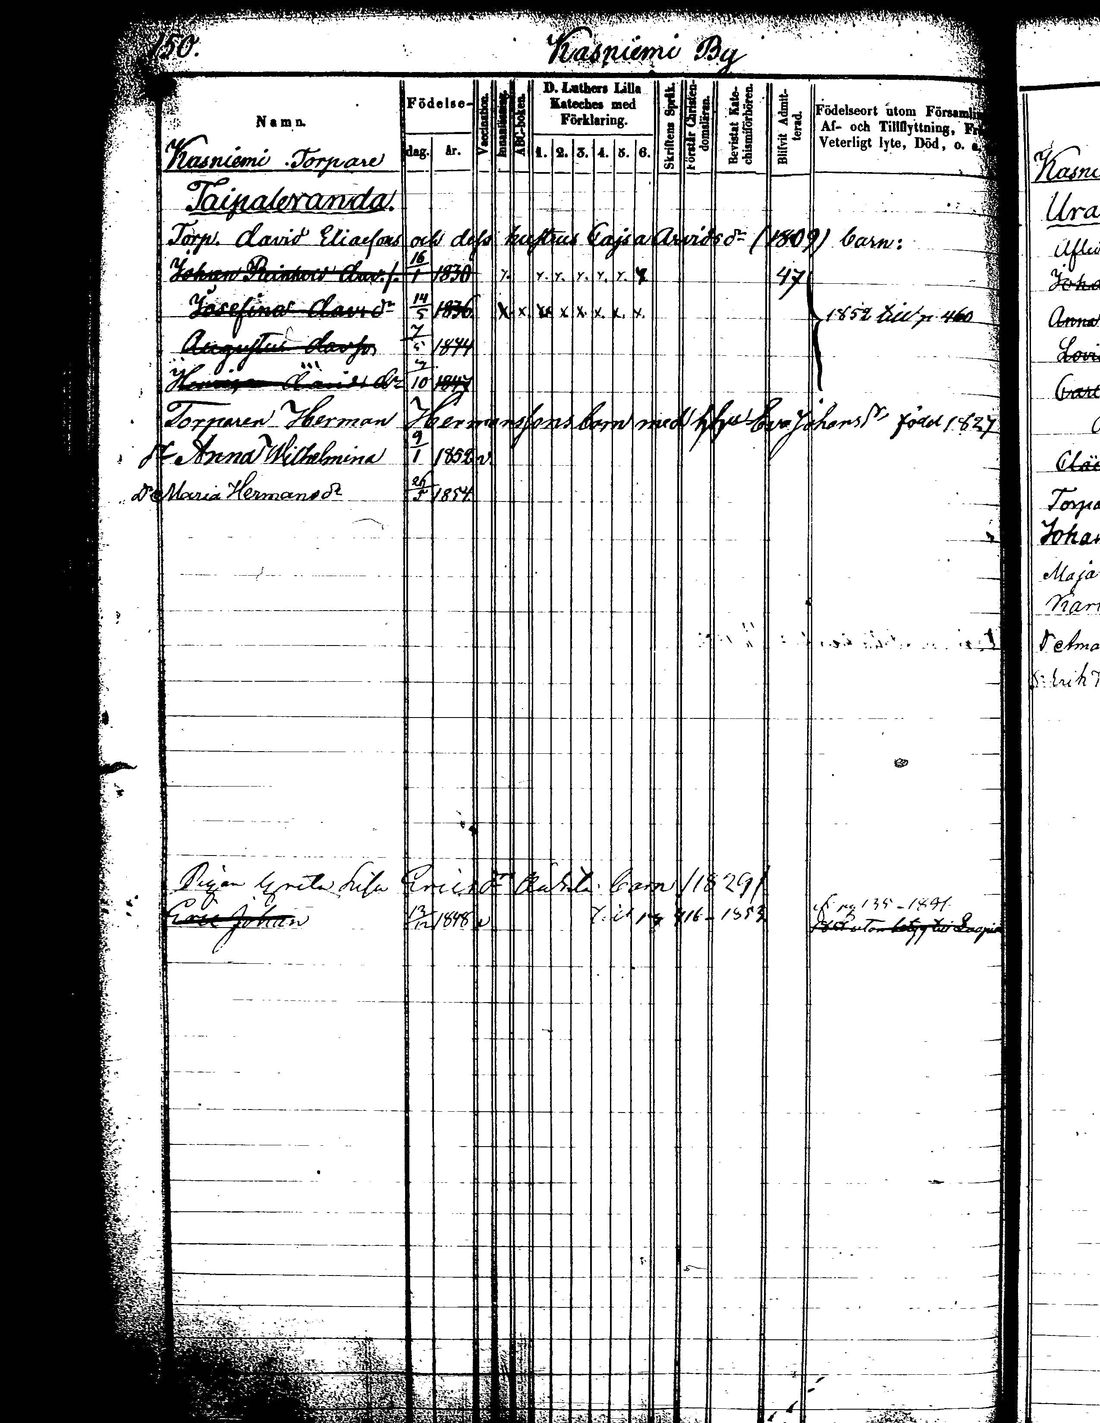 150.
Kasniemi By
Namn.
Födelse-
dag.
år.
Vaccination.
Innanläsning.
ABC-boken.
D. Luthers Lilla
Kateches med
Förklaring.
1. 2. 3. 4. 5. 6.
Skriftens Språk.
Förstår Christen-
domsläran.
Bevistat Kate-
chismiförhören.
Blifvit Admit-
terad.
Födelseort utom Församlin
Af- och Tillflyttning, Fr
Veterligt lyte, Död, o. a.
Kasniemi Torpare
Taipaleranda.
Torp. David Eliaesons och dess hustrus Cajsa Arvidsdr (1809) barn:
Johan Dav.s. 16/1 1830 47
Josefina Davidsdr 14/5 1836 x x x x x x x 1852 till p. 460
Augustus Davss. 7/5 1844
Davidsdr 7/10 1847
Torparen Herman Hermanssons barn med Eva Johansdr född 1827
dr Anna Wilhelmina 9/1 1852 v
Dr Maria Hermansdr 26/5 1854
Pigan Greta Lisa Ericsdr barn (1829)
Eric Johan 13/12 1848 v 716 - 1853
135 - 1891
Kasni
Ura
Joha
Anna
Lovi
Torpa
Johan
Maja
Kari
dr Ama
Erik